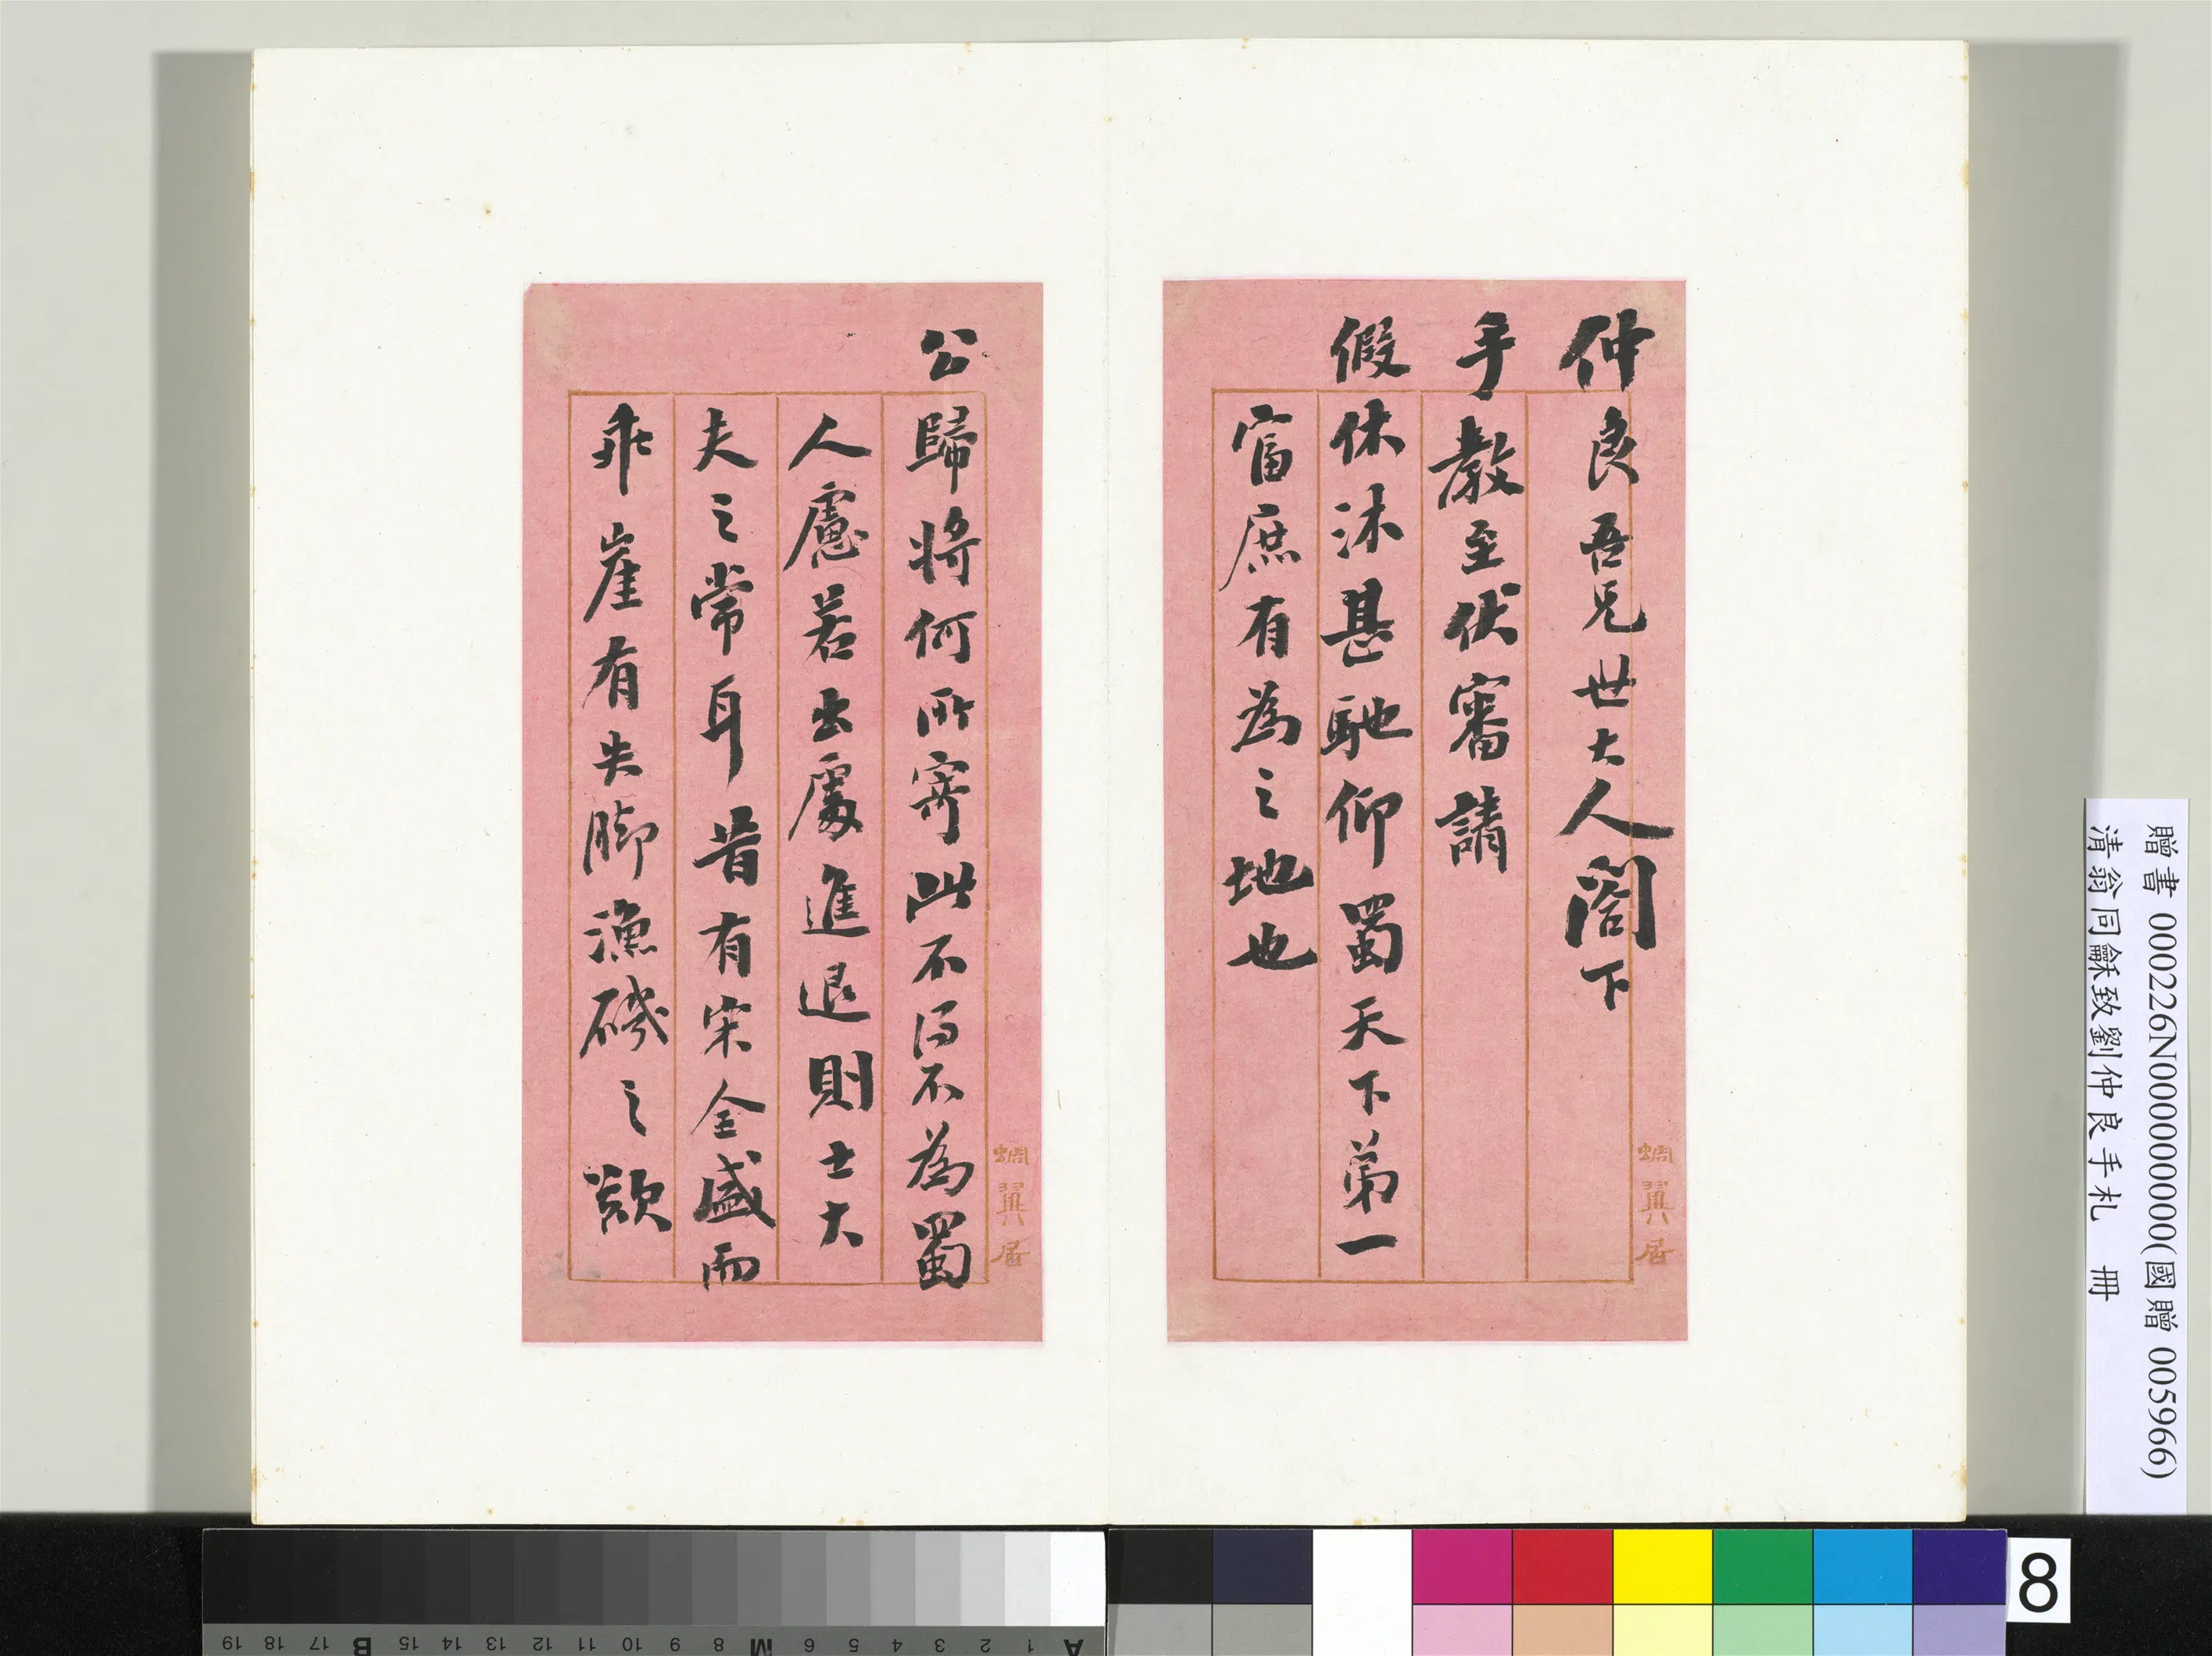 仲良吾兄世大人閣下
手教至伏審請
假休沐甚馳仰蜀天下第一
富庶有為之地也
蜩翼居
公歸將何所寄此不得不為蜀
人慮若出處進退則士大
夫之常耳昔有宋全盛而
乖崖有失腳漁磯之歎
蜩翼居
贈書 000226N000000000(國贈 005966)
清翁同龢致劉仲良手札 冊
8
A 1 2 3 4 5 6 M 8 9 10 11 12 13 14 15 B 17 18 19